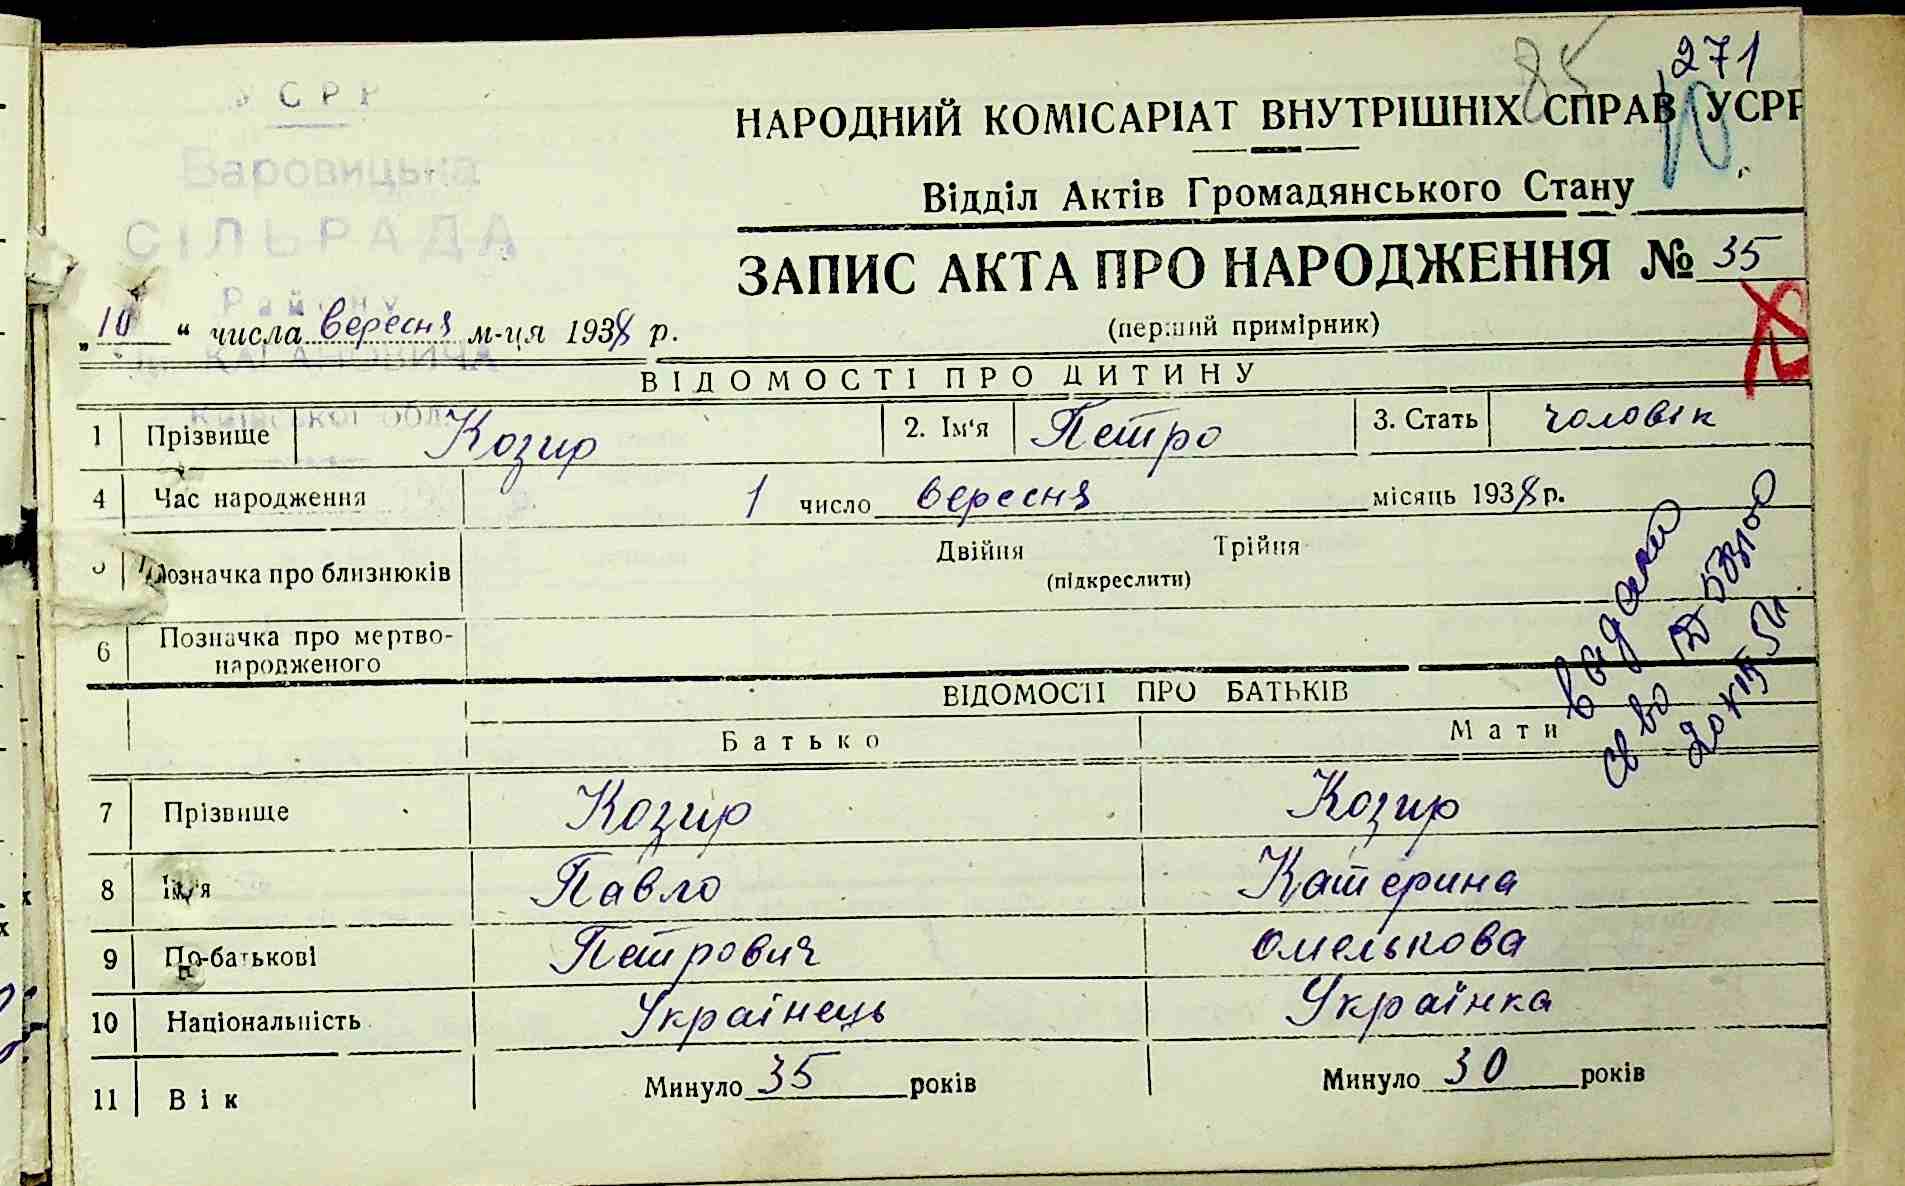 УСРР
Варовицька
СІЛЬРАДА
Району
КАГАНОВИЧА
Київської обл.
85
271
НАРОДНИЙ КОМІСАРІАТ ВНУТРІШНІХ СПРАВ УСРР
Відділ Актів Громадянського Стану
ЗАПИС АКТА ПРО НАРОДЖЕННЯ № 35
(перший примірник)
„10“ числа вересня м-ця 1938 р.
ВІДОМОСТІ ПРО ДИТИНУ
1 Прізвище Козир 2. Ім'я Петро 3. Стать чоловік
4 Час народження 1 число вересня місяць 1938 р.
5 Позначка про близнюків Двійня Трійня
(підкреслити)
6 Позначка про мертво-
народженого
ВІДОМОСТІ ПРО БАТЬКІВ
Батько Мати
7 Прізвище Козир Козир
8 Ім'я Павло Катерина
9 По-батькові Петрович Омелькова
10 Національність Українець Українка
11 Вік Минуло 35 років Минуло 30 років